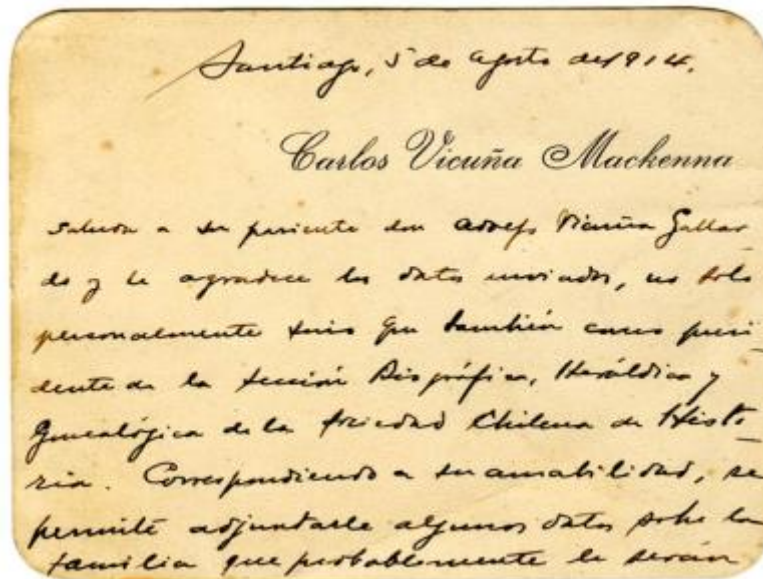 Santiago, 5 de agosto de 1914.
Carlos Vicuña Mackenna
saluda a su pariente don Adolfo Vicuña Gallar
do y le agradece los datos enviados, no solo
personalmente sino que también como presi-
dente de la sección Biográfica, Heráldica y
Genealógica de la Sociedad Chilena de Histo-
ria. Correspondiendo a su amabilidad, se
permite adjuntarle algunos datos sobre la
familia que probablemente le serán